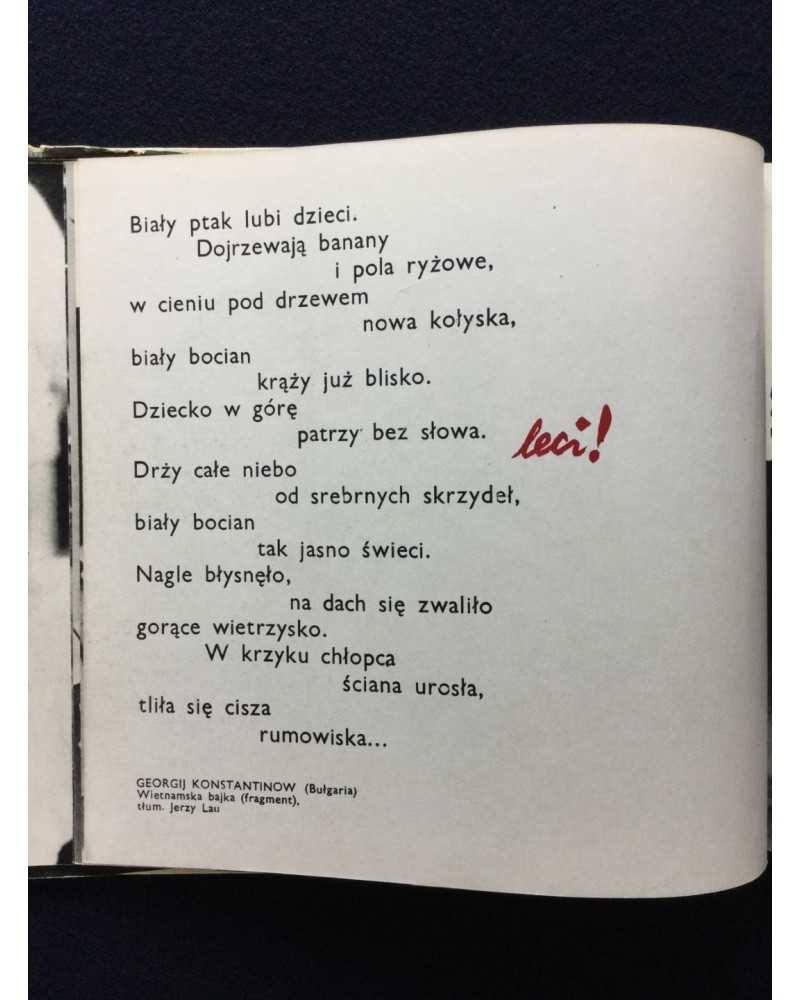 Biały ptak lubi dzieci.
Dojrzewają banany
i pola ryżowe,
w cieniu pod drzewem
nowa kołyska,
biały bocian
krąży już blisko.
Dziecko w górę
patrzy bez słowa.
leci!
Drży całe niebo
od srebrnych skrzydeł,
biały bocian
tak jasno świeci.
Nagle błysnęło,
na dach się zwaliło
gorące wietrzysko.
W krzyku chłopca
ściana urosła,
tliła się cisza
rumowiska...
GEORGIJ KONSTANTINOW (Bułgaria)
Wietnamska bajka (fragment),
tłum. Jerzy Lau